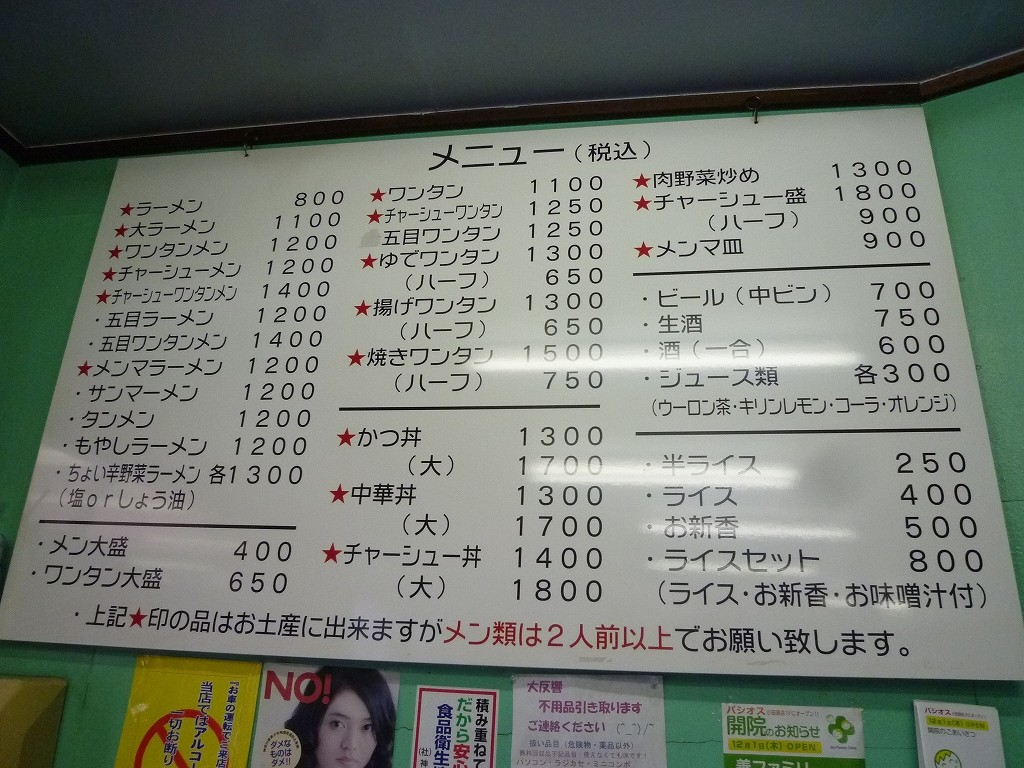 メニュー(税込)
★ラーメン 800
★大ラーメン 1100
★ワンタンメン 1200
★チャーシューメン 1200
★チャーシューワンタンメン 1400
・五目ラーメン 1200
・五目ワンタンメン 1400
★メンマラーメン 1200
・サンマーメン 1200
・タンメン 1200
・もやしラーメン 1200
・ちょい辛野菜ラーメン 各1300
(塩orしょう油)
・メン大盛 400
・ワンタン大盛 650
★ワンタン 1100
★チャーシューワンタン 1250
五目ワンタン 1250
★ゆでワンタン 1300
(ハーフ) 650
★揚げワンタン 1300
(ハーフ) 650
★焼きワンタン 1500
(ハーフ) 750
★かつ丼 1300
(大) 1700
★中華丼 1300
(大) 1700
★チャーシュー丼 1400
(大) 1800
★肉野菜炒め 1300
★チャーシュー盛 1800
(ハーフ) 900
★メンマ皿 900
・ビール(中ビン) 700
・生酒 750
・酒(一合) 600
・ジュース類 各300
(ウーロン茶・キリンレモン・コーラ・オレンジ)
・半ライス 250
・ライス 400
・お新香 500
・ライスセット 800
(ライス・お新香・お味噌汁付)
・上記★印の品はお土産に出来ますがメン類は2人前以上でお願い致します。
『お車の運転でご来店
当店ではアルコー
一切お断り
NO!
ダメな
ものは
ダメ!!
積み重ねて
だから安心
食品衛生
大反響
不用品引き取ります
ご連絡ください
扱い品目(危険物・薬品以外)
パソコン・ラジカセ・ミニコンポ
バシオス
開院のお知らせ
12月1日(木) OPEN
バシオス
12月1日(木)OPEN
開院のごあいさつ